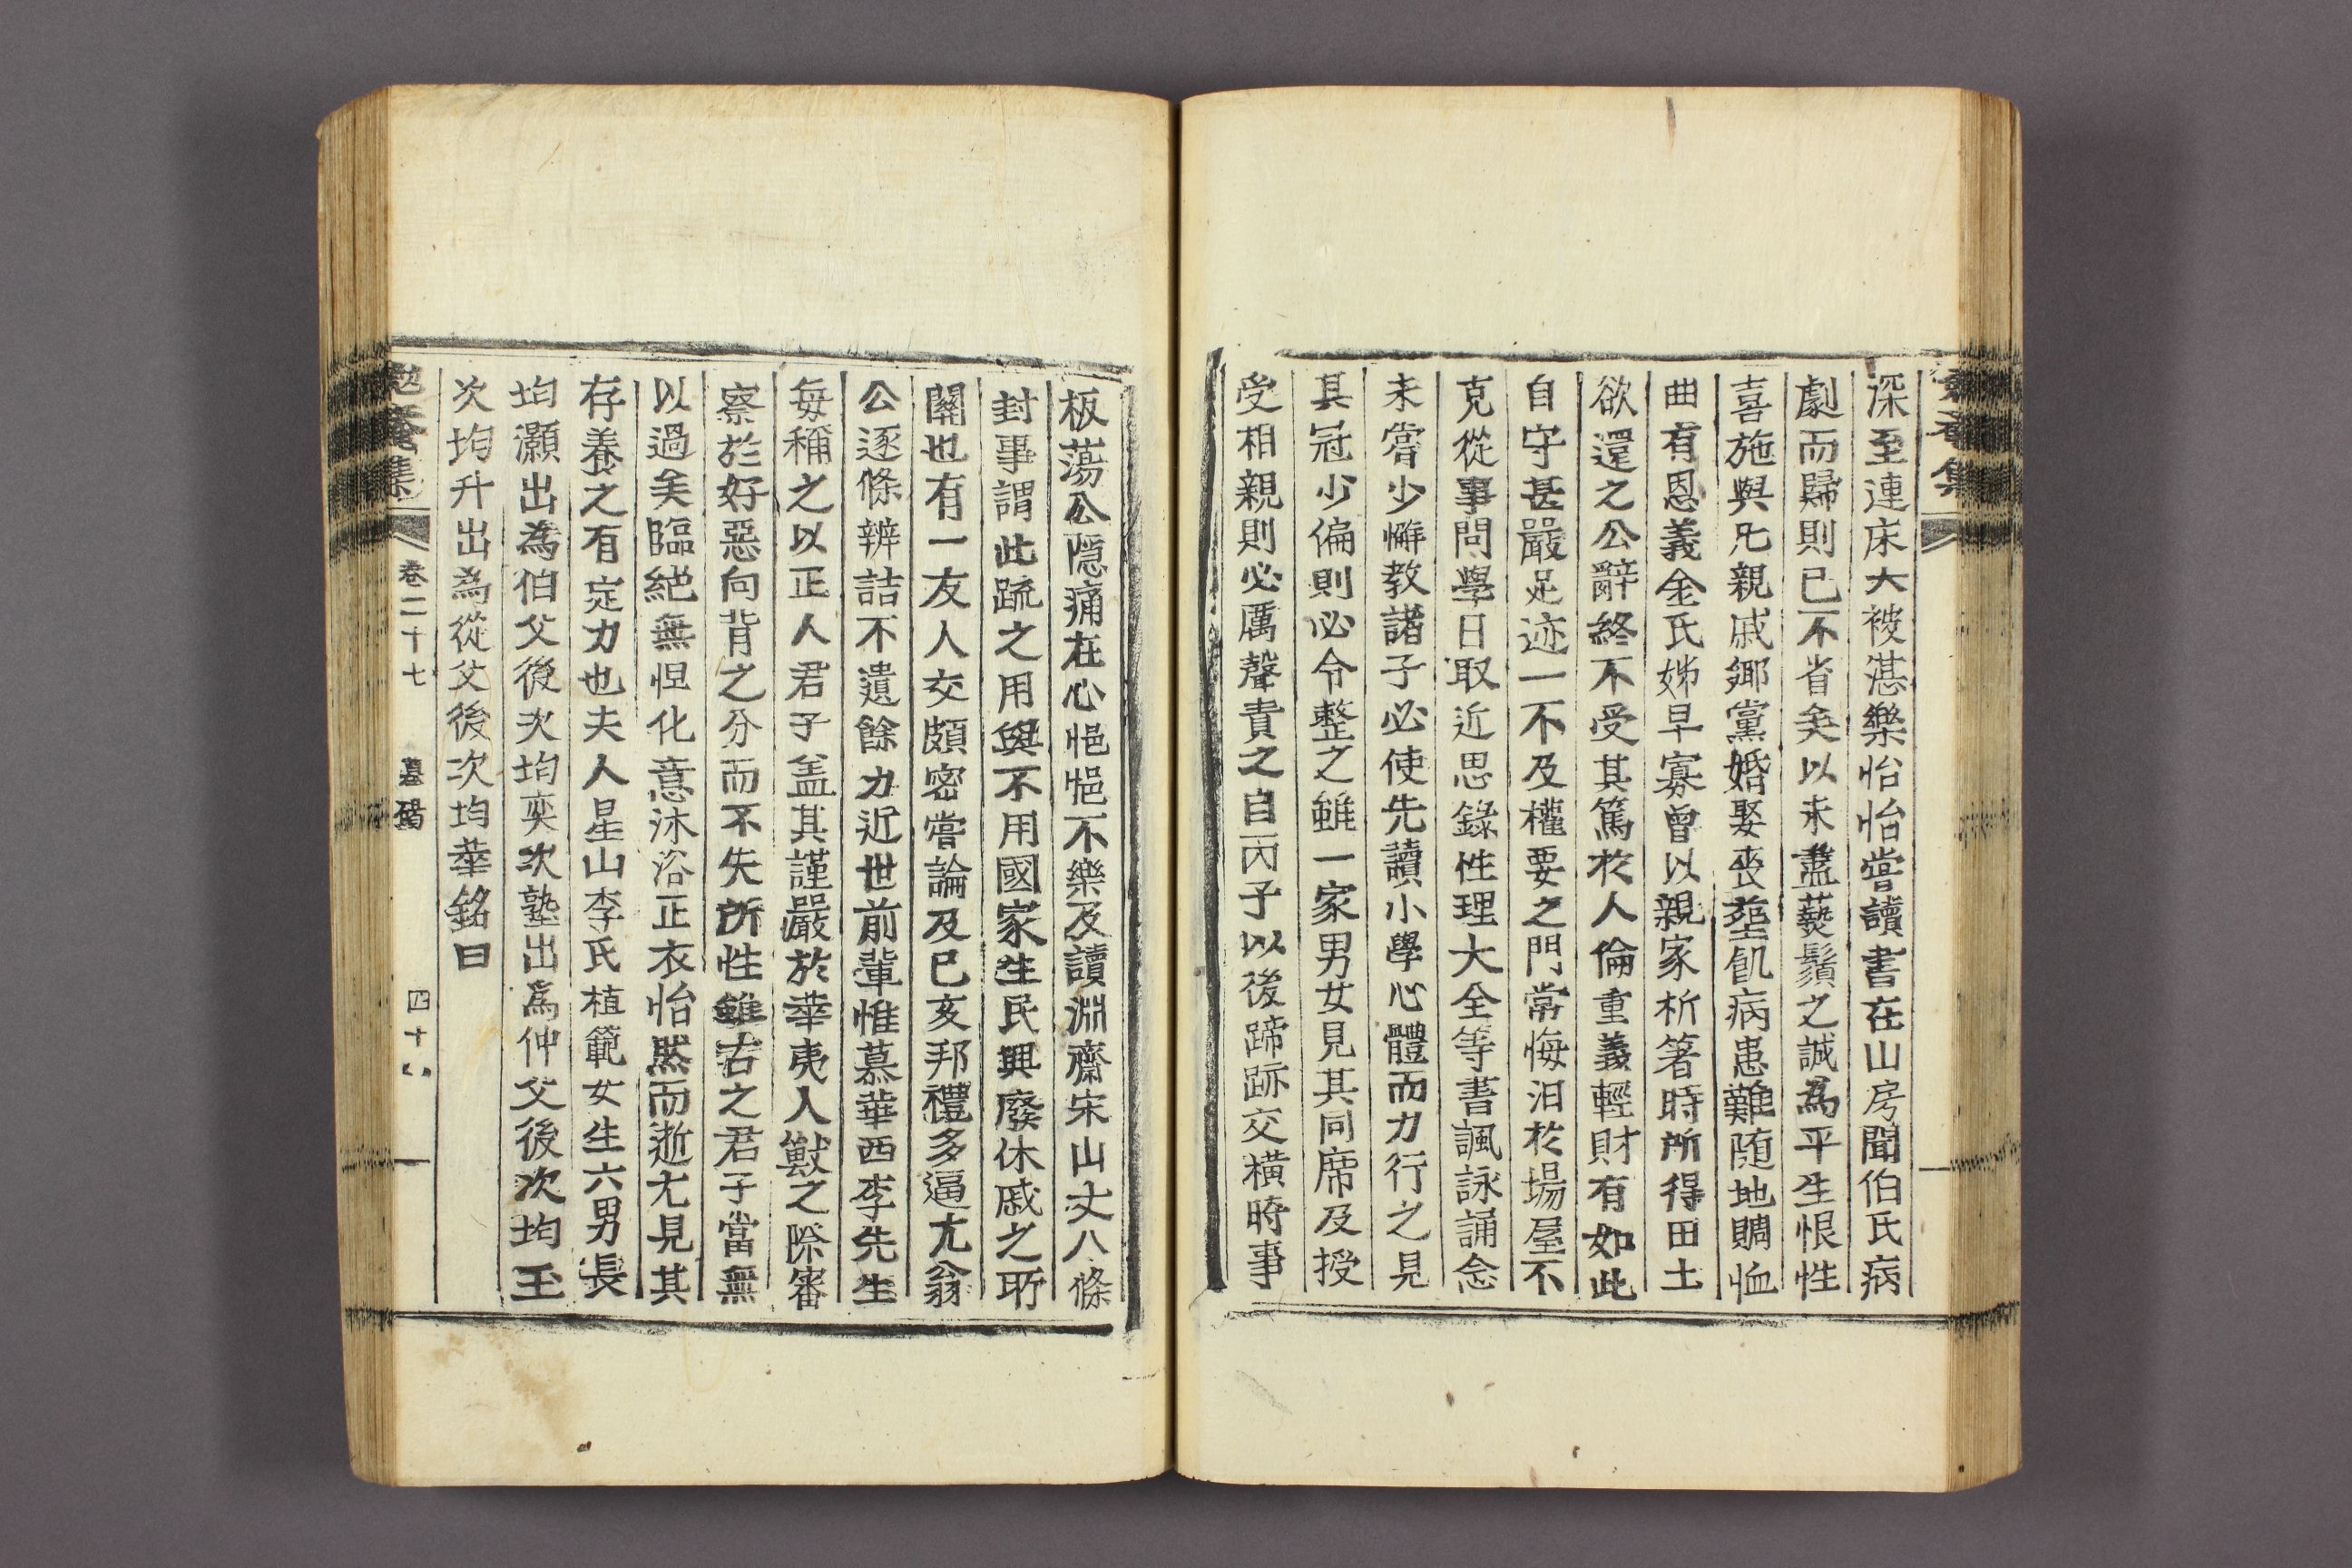 深至連床大被湛樂怡怡嘗讀書在山房聞伯氏病
劇而歸則已不省矣以未盡爇鬚之誠爲平生恨性
喜施與凡親戚鄕黨婚娶喪塟飢病患難随地賙恤
曲有恩義金氏姊早寡曾以親家析箸時所得田土
欲還之公辭終不受其篤於人倫重義輕財有如此
自守甚嚴足迹一不及權要之門常悔汨於場屋不
克從事問學日取近思錄性理大全等書諷詠誦念
未甞少懈教諸子必使先讀小學心體而力行之見
其冠少偏則必令整之雖一家男女見其同席及授
受相親則必厲聲責之自丙子以後蹄跡交橫時事
板蕩公隱痛在心悒悒不樂及讀淵齋宋山丈八條
封事謂此疏之用與不用國家生民興廢休戚之所
關也有一友人交頗密嘗論及己亥邦禮多逼尤翁
公逐條辨詰不遺餘力近世前輩惟慕華西李先生
每稱之以正人君子盖其謹嚴於華夷人獸之際審
察於好惡向背之分而不失所性雖古之君子當無
以過矣臨絕無怛化意沐浴正衣怡然而逝尤見其
存養之有定力也夫人星山李氏植範女生六男長
均灝出爲伯父後次均奕次塾出爲仲父後次均玉
次均升出爲從父後次均華銘曰
勉菴集 卷二十七 墓碣 四十八